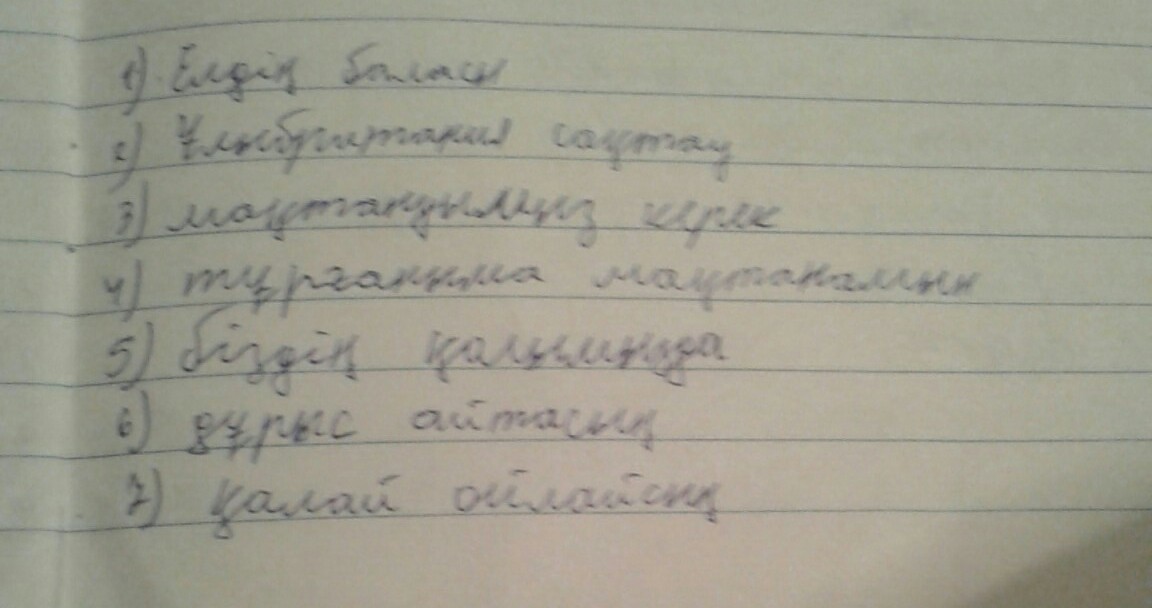 1) Елдің баласы
2) Ұлыбритания сақтау
3) мақтануымыз керек
4) тұрғаныма мақтанамын
5) біздің қалымызда
6) дұрыс айтасың
7) қалай ойлайсың